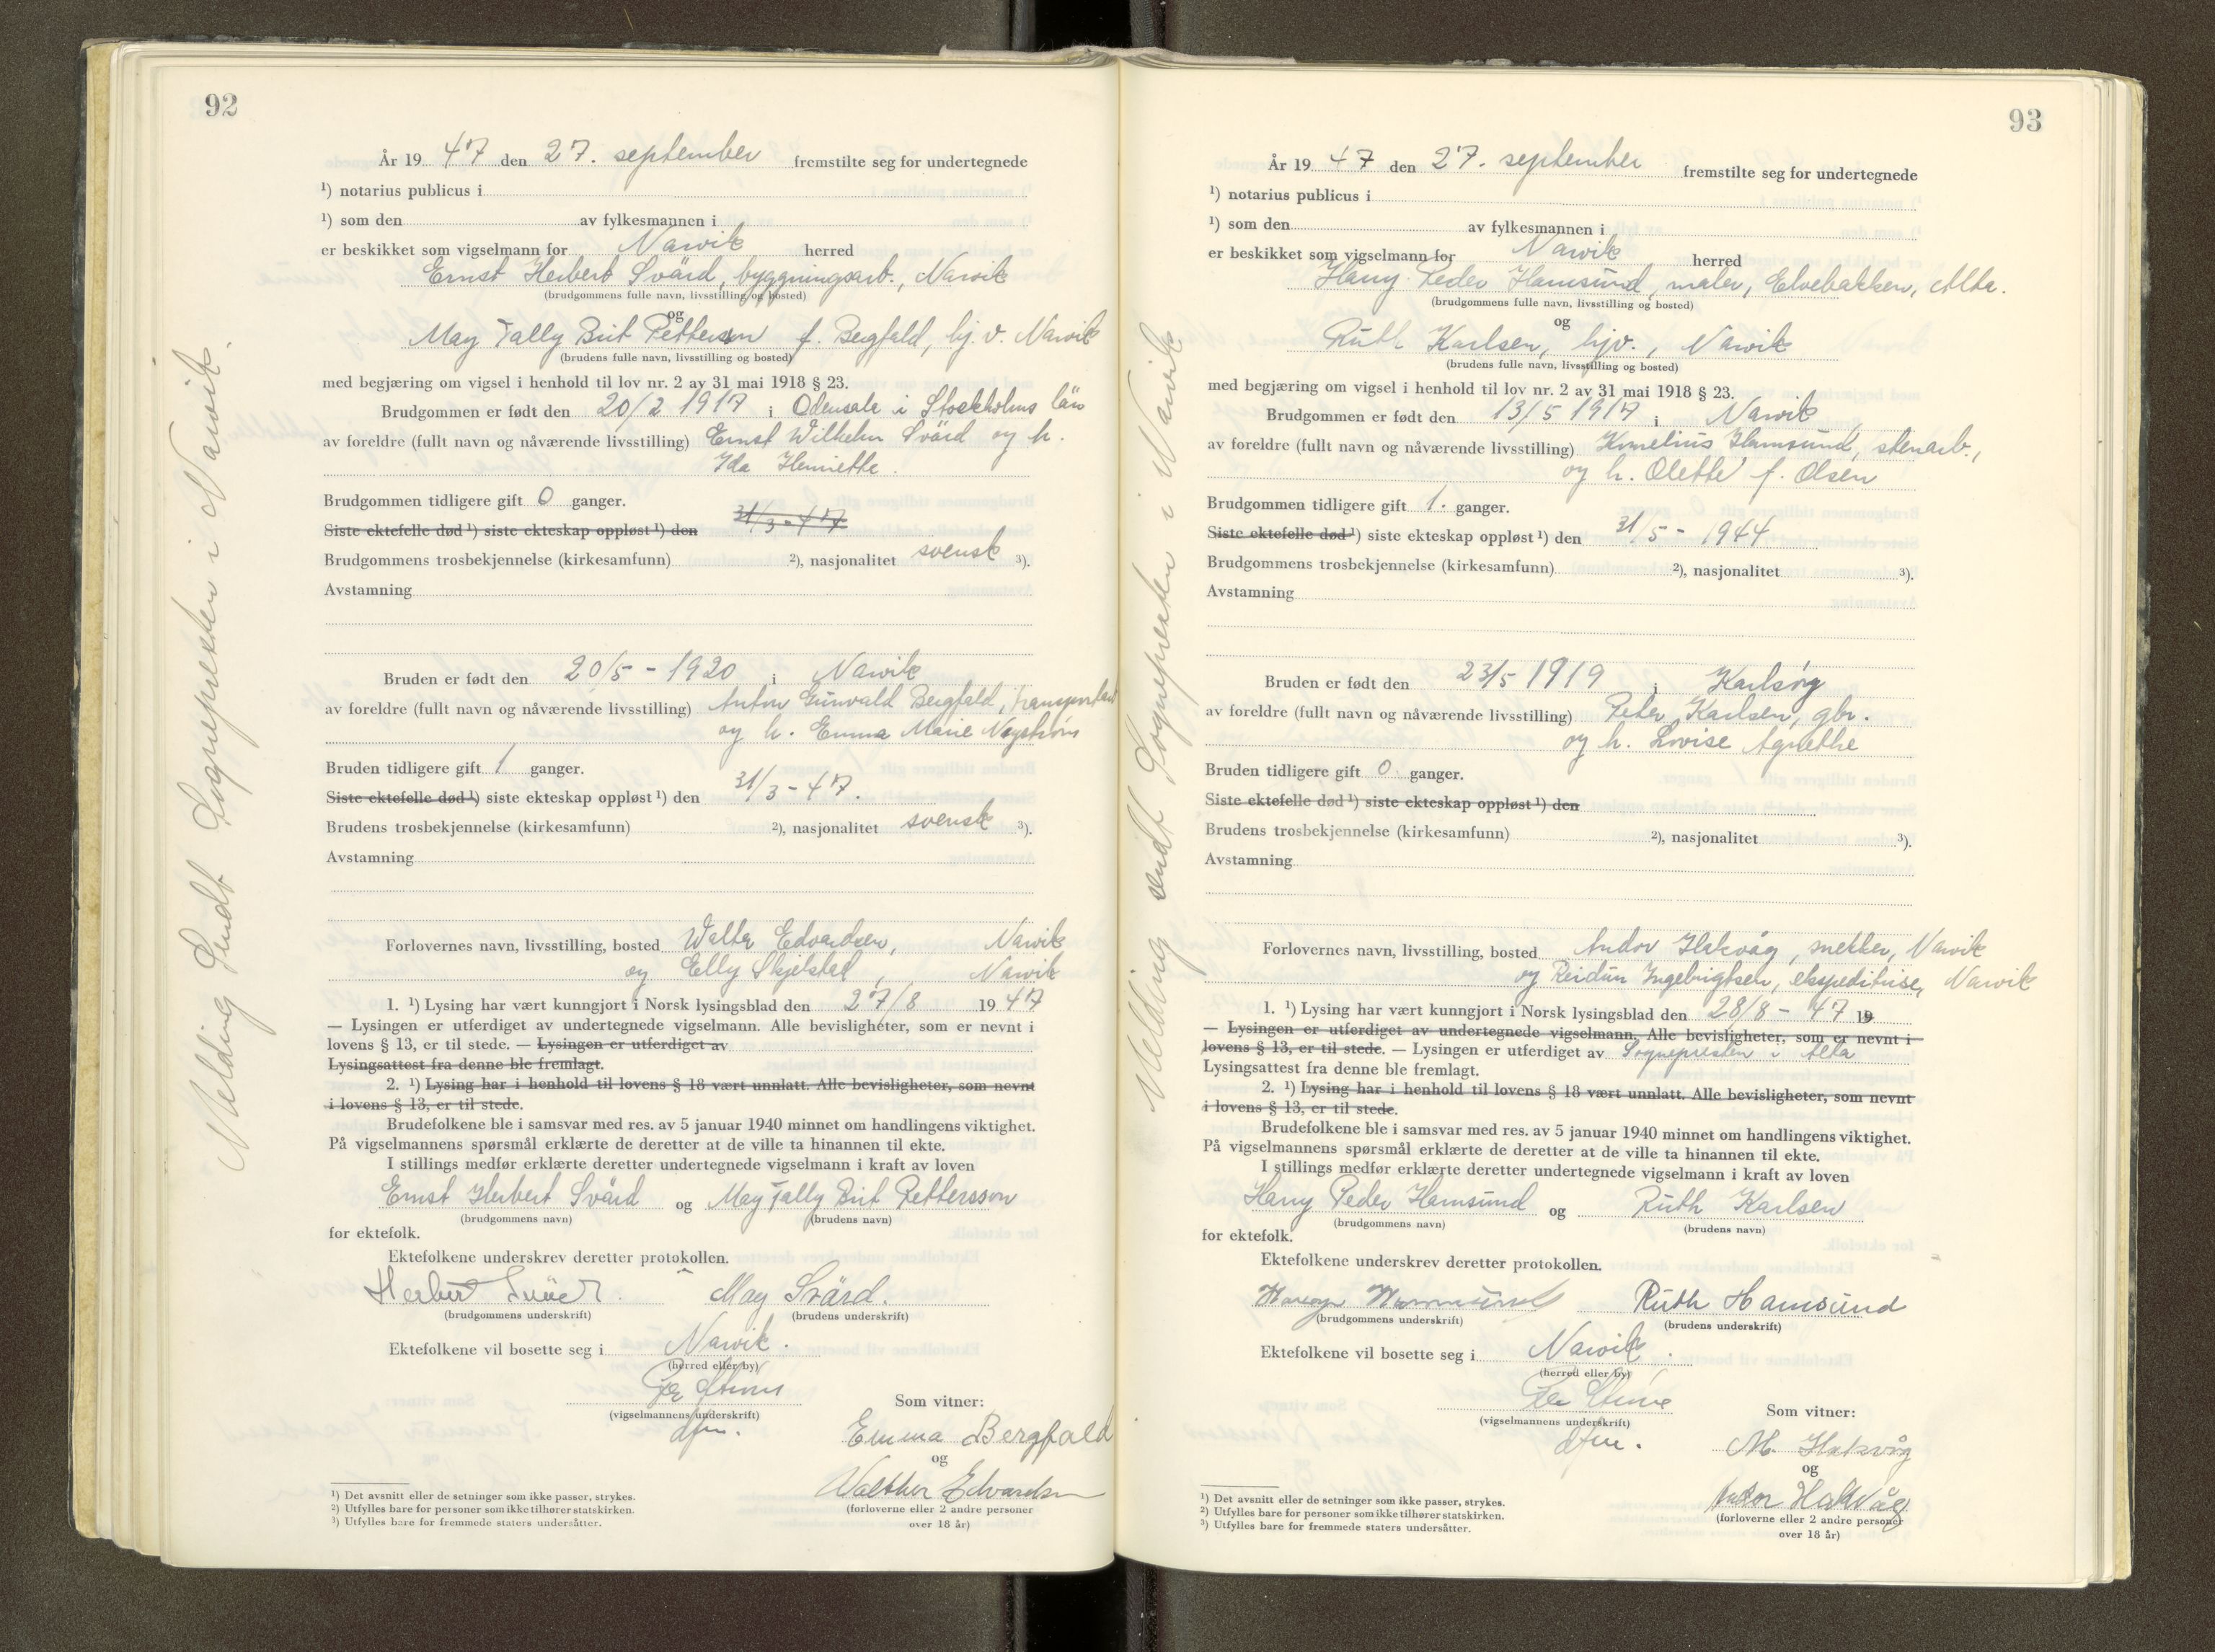 92
År 19 47 den 27. september fremstilte seg for undertegnede
¹) notarius publicus i
¹) som den av fylkesmannen i
er beskikket som vigselmann for Narvik herred
Ernst Herbert Svärd, byggningsarb., Narvik
(brudgommens fulle navn, livsstilling og bosted)
og
May Tally Brit Petterson f. Bergfald, hj.v. Narvik
(brudens fulle navn, livsstilling og bosted)
med begjæring om vigsel i henhold til lov nr. 2 av 31 mai 1918 § 23.
Brudgommen er født den 20/2 1917 i Odensala i Stockholms län
av foreldre (fullt navn og nåværende livsstilling) Ernst Wilhelm Svärd og h.
Ida Henriette.
Brudgommen tidligere gift 0 ganger.
Siste ektefelle død ¹) siste ekteskap oppløst ¹) den 31/3-47
Brudgommens trosbekjennelse (kirkesamfunn) ²), nasjonalitet svensk ³).
Avstamning
Bruden er født den 20/5 - 1920 i Narvik
av foreldre (fullt navn og nåværende livsstilling) Anton Gunvald Bergfald,
og h. Emma Marie Nystrøm
Bruden tidligere gift 1 ganger.
Siste ektefelle død ¹) siste ekteskap oppløst ¹) den 31/3 - 47.
Brudens trosbekjennelse (kirkesamfunn) ²), nasjonalitet svensk ³).
Avstamning
Forlovernes navn, livsstilling, bosted Walter Edvardsen, Narvik
og Elly Skjelstad, Narvik
1. ¹) Lysing har vært kunngjort i Norsk lysingsblad den 27/8 19 47
— Lysingen er utferdiget av undertegnede vigselmann. Alle bevisligheter, som er nevnt i
lovens § 13, er til stede. — Lysingen er utferdiget av
Lysingsattest fra denne ble fremlagt.
2. ¹) Lysing har i henhold til lovens § 18 vært unnlatt. Alle bevisligheter, som nevnt
i lovens § 13, er til stede.
Brudefolkene ble i samsvar med res. av 5 januar 1940 minnet om handlingens viktighet.
På vigselmannens spørsmål erklærte de deretter at de ville ta hinannen til ekte.
I stillings medfør erklærte deretter undertegnede vigselmann i kraft av loven
Ernst Herbert Svärd og May Tally Brit Pettersson
(brudgommens navn) (brudens navn)
for ektefolk.
Ektefolkene underskrev deretter protokollen.
Herbert Svärd. May Svärd.
(brudgommens underskrift) (brudens underskrift)
Ektefolkene vil bosette seg i Narvik.
(herred eller by)
(vigselmannens underskrift)
dfm.
Som vitner:
Emma Bergfald
og
Walther Edvardsen
(forloverne eller 2 andre personer
over 18 år)
¹) Det avsnitt eller de setninger som ikke passer, strykes.
²) Utfylles bare for personer som ikke tilhører statskirken.
³) Utfylles bare for fremmede staters undersåtter.
Melding Sendt Sognepresten i Narvik.
93
År 19 47 den 27. september fremstilte seg for undertegnede
¹) notarius publicus i
¹) som den av fylkesmannen i
er beskikket som vigselmann for Narvik herred
Harry Peder Hamsund, maler, Elvebakken, Alta.
(brudgommens fulle navn, livsstilling og bosted)
og
Ruth Karlsen, hjv., Narvik
(brudens fulle navn, livsstilling og bosted)
med begjæring om vigsel i henhold til lov nr. 2 av 31 mai 1918 § 23.
Brudgommen er født den 13/5 1917 i Narvik
av foreldre (fullt navn og nåværende livsstilling) Kornelius Hamsund, stenarb.,
og h. Olette f. Olsen
Brudgommen tidligere gift 1. ganger.
Siste ektefelle død ¹) siste ekteskap oppløst ¹) den 31/5 - 1944
Brudgommens trosbekjennelse (kirkesamfunn) ²), nasjonalitet ³).
Avstamning
Bruden er født den 23/5 1919 i Karlsøy
av foreldre (fullt navn og nåværende livsstilling) Peter Karlsen, gbr.
og h. Lovise Agnethe
Bruden tidligere gift 0 ganger.
Siste ektefelle død ¹) siste ekteskap oppløst ¹) den
Brudens trosbekjennelse (kirkesamfunn) ²), nasjonalitet ³).
Avstamning
Forlovernes navn, livsstilling, bosted Andor Hakvåg, snekker, Narvik
og Reidun Ingebrigtsen, ekspeditrise, Narvik
1. ¹) Lysing har vært kunngjort i Norsk lysingsblad den 28/8 - 47 19
— Lysingen er utferdiget av undertegnede vigselmann. Alle bevisligheter, som er nevnt i
lovens § 13, er til stede. — Lysingen er utferdiget av Sognepresten i Alta
Lysingsattest fra denne ble fremlagt.
2. ¹) Lysing har i henhold til lovens § 18 vært unnlatt. Alle bevisligheter, som nevnt
i lovens § 13, er til stede.
Brudefolkene ble i samsvar med res. av 5 januar 1940 minnet om handlingens viktighet.
På vigselmannens spørsmål erklærte de deretter at de ville ta hinannen til ekte.
I stillings medfør erklærte deretter undertegnede vigselmann i kraft av loven
Harry Peder Hamsund og Ruth Karlsen
(brudgommens navn) (brudens navn)
for ektefolk.
Ektefolkene underskrev deretter protokollen.
Harry Hamsund Ruth Hamsund
(brudgommens underskrift) (brudens underskrift)
Ektefolkene vil bosette seg i Narvik.
(herred eller by)
(vigselmannens underskrift)
dfm.
Som vitner:
M. Hakvåg
og
Andor Hakvåg
(forloverne eller 2 andre personer
over 18 år)
¹) Det avsnitt eller de setninger som ikke passer, strykes.
²) Utfylles bare for personer som ikke tilhører statskirken.
³) Utfylles bare for fremmede staters undersåtter.
Melding sendt Sognepresten i Narvik